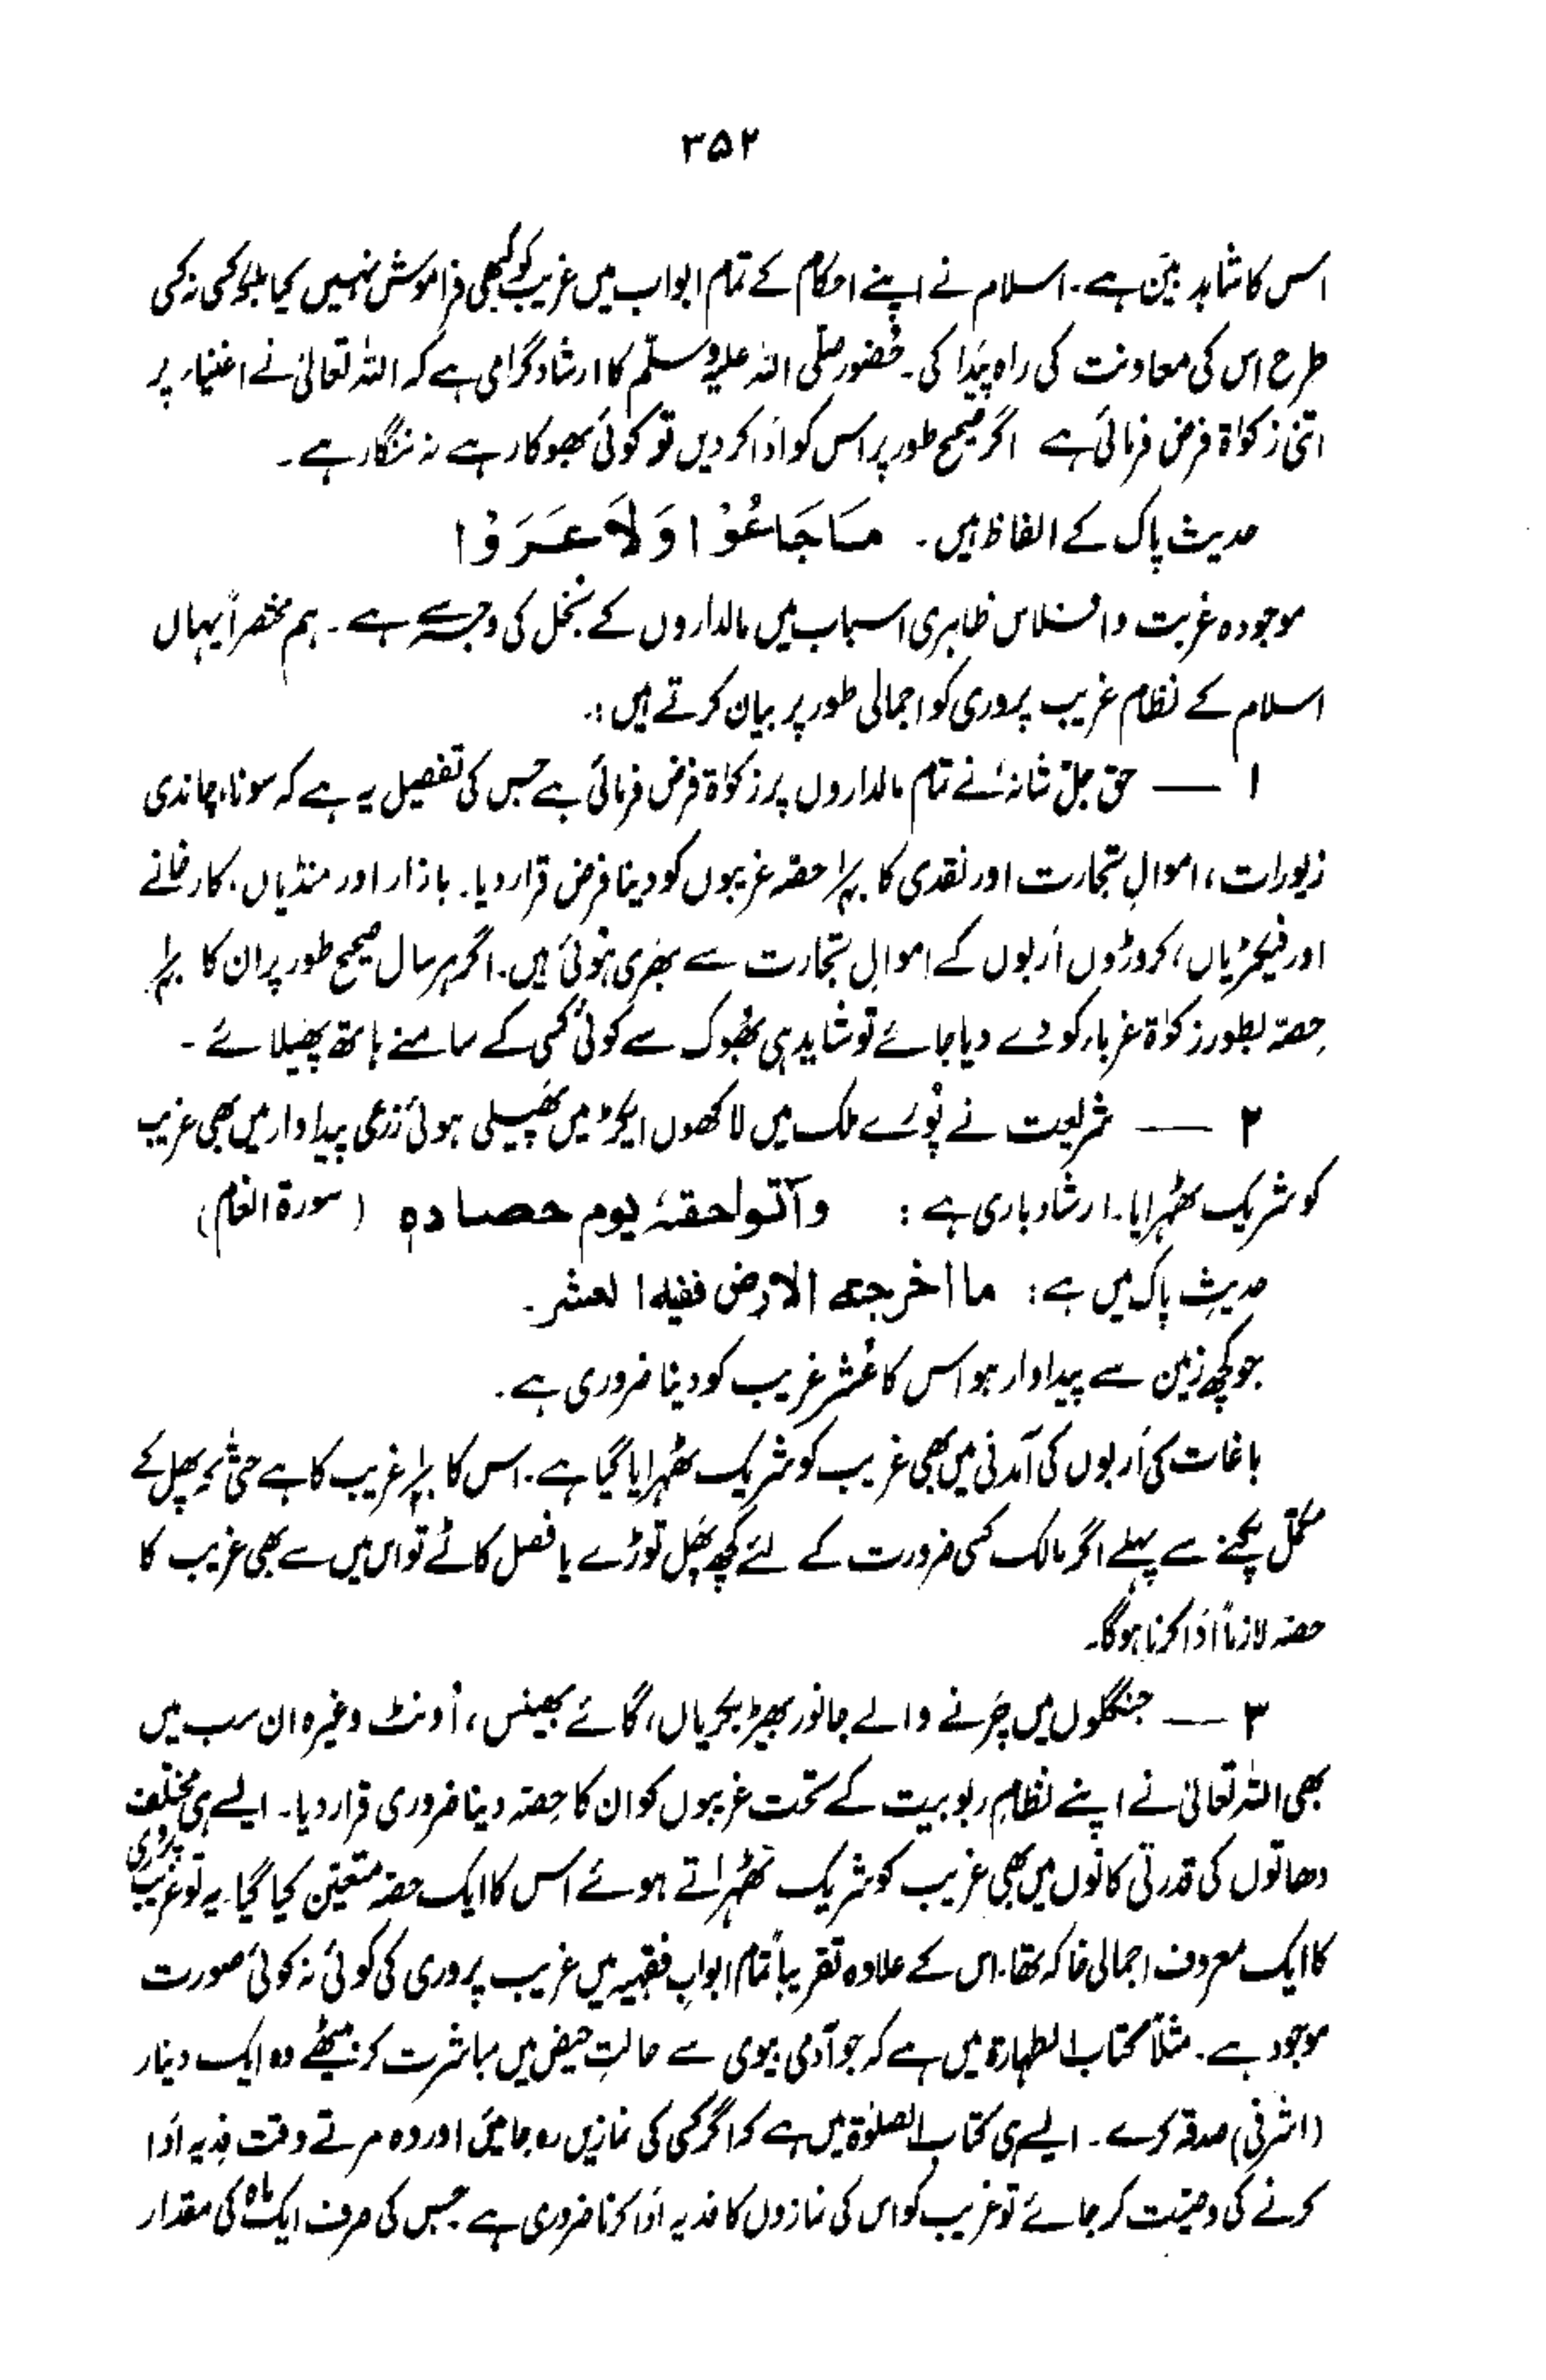 ۳۵۲
اس کا شاہد بیّن ہے۔ اسلام نے اپنے احکام کے تمام ابواب میں غریب کو کبھی فراموش نہیں کیا بلکہ کسی نہ کسی
طرح اس کی معاونت کی راہ پیدا کی۔ حُضور صلّی اللہ علیہ وسلّم کا ارشاد گرامی ہے کہ اللہ تعالیٰ نے اغنیار پر
اتنی زکوٰۃ فرض فرمائی ہے اگر صحیح طور پر اس کو ادَا کر دیں تو کوئی بھوکا رہے نہ ننگا رہے۔
حدیث پاک کے الفاظ ہیں۔ مَا جَاعُوْا وَلَا عَرَوْا
موجودہ غربت و افلاس ظاہری اسباب میں مالداروں کے بُخل کی وجہ سے ہے۔ ہم مختصراً یہاں
اسلام کے نظام غریب پروری کو اجمالی طور پر بیان کرتے ہیں :۔
۱ — حق جلّ شانہٗ نے تمام مالداروں پر زکوٰۃ فرض فرمائی ہے جس کی تفصیل یہ ہے کہ سونا، چاندی
زیورات، اموالِ تجارت اور نقدی کا ۱/۴۰ حصّہ غریبوں کو دینا فرض قرار دیا۔ بازار اور منڈیاں، کارخانے
اور فیکٹریاں، کروڑوں اَربوں کے اموالِ تجارت سے بھری ہُوئی ہیں۔ اگر ہر سال صحیح طور پر ان کا ۱/۴۰
حِصّہ بطور زکوٰۃ غرباء کو دے دیا جائے تو شاید ہی بھُوک سے کوئی کسی کے سامنے ہاتھ پھیلائے۔
۲ — شریعت نے پُورے ملک میں لاکھوں ایکڑ میں پھیلی ہوئی زرعی پیداوار میں بھی غریب
کو شریک ٹھہرایا۔ ارشاد باری ہے : وآتوا حقہٗ یوم حصادہ (سورۃ انعام)
حدیثِ پاک میں ہے : ما اخرجتہ الارض ففیہ العشر۔
جو کچھ زمین سے پیداوار ہو اس کا عُشر غریب کو دینا ضروری ہے۔
باغات کی اَربوں کی آمدنی میں بھی غریب کو شریک ٹھہرایا گیا ہے۔ اس کا ۱/۱۰ غریب کا ہے حتیٰ کہ پھل کے
مکمّل پکنے سے پہلے اگر مالک کسی ضرورت کے لئے کچھ پھَل توڑے یا فصل کاٹے تو اس میں سے بھی غریب کا
حصّہ لازماً ادَا کرنا ہو گا۔
۳ — جنگلوں میں چَرنے والے جانور بھیڑ بکریاں، گائے بھینس، اُونٹ وغیرہ ان سب میں
بھی اللہ تعالیٰ نے اپنے نظامِ ربوبیت کے تحت غریبوں کو ان کا حِصّہ دینا ضروری قرار دیا۔ ایسے ہی مختلف
دھاتوں کی قدرتی کانوں میں بھی غریب کو شریک ٹھہراتے ہوئے اس کا ایک حصّہ متعیّن کیا گیا۔ یہ تو غریب پروری
کا ایک معروف اجمالی خاکہ تھا۔ اس کے علاوہ تقریباً تمام ابوابِ فقہیہ میں غریب پروری کی کوئی نہ کوئی صورت
موجود ہے۔ مثلاً کتاب الطہارۃ میں ہے کہ جو آدمی بیوی سے حالتِ حیض میں مباشرت کر بیٹھے وہ ایک دینار
(اشرفی) صدقہ کرے۔ ایسے ہی کتاب الصلوٰۃ میں ہے کہ اگر کسی کی نمازیں رہ جائیں اور وہ مرتے وقت فِدیہ ادَا
کرنے کی وصیّت کر جائے تو غریب کو اس کی نمازوں کا فدیہ ادَا کرنا ضروری ہے جس کی صرف ایک ماہ کی مقدار